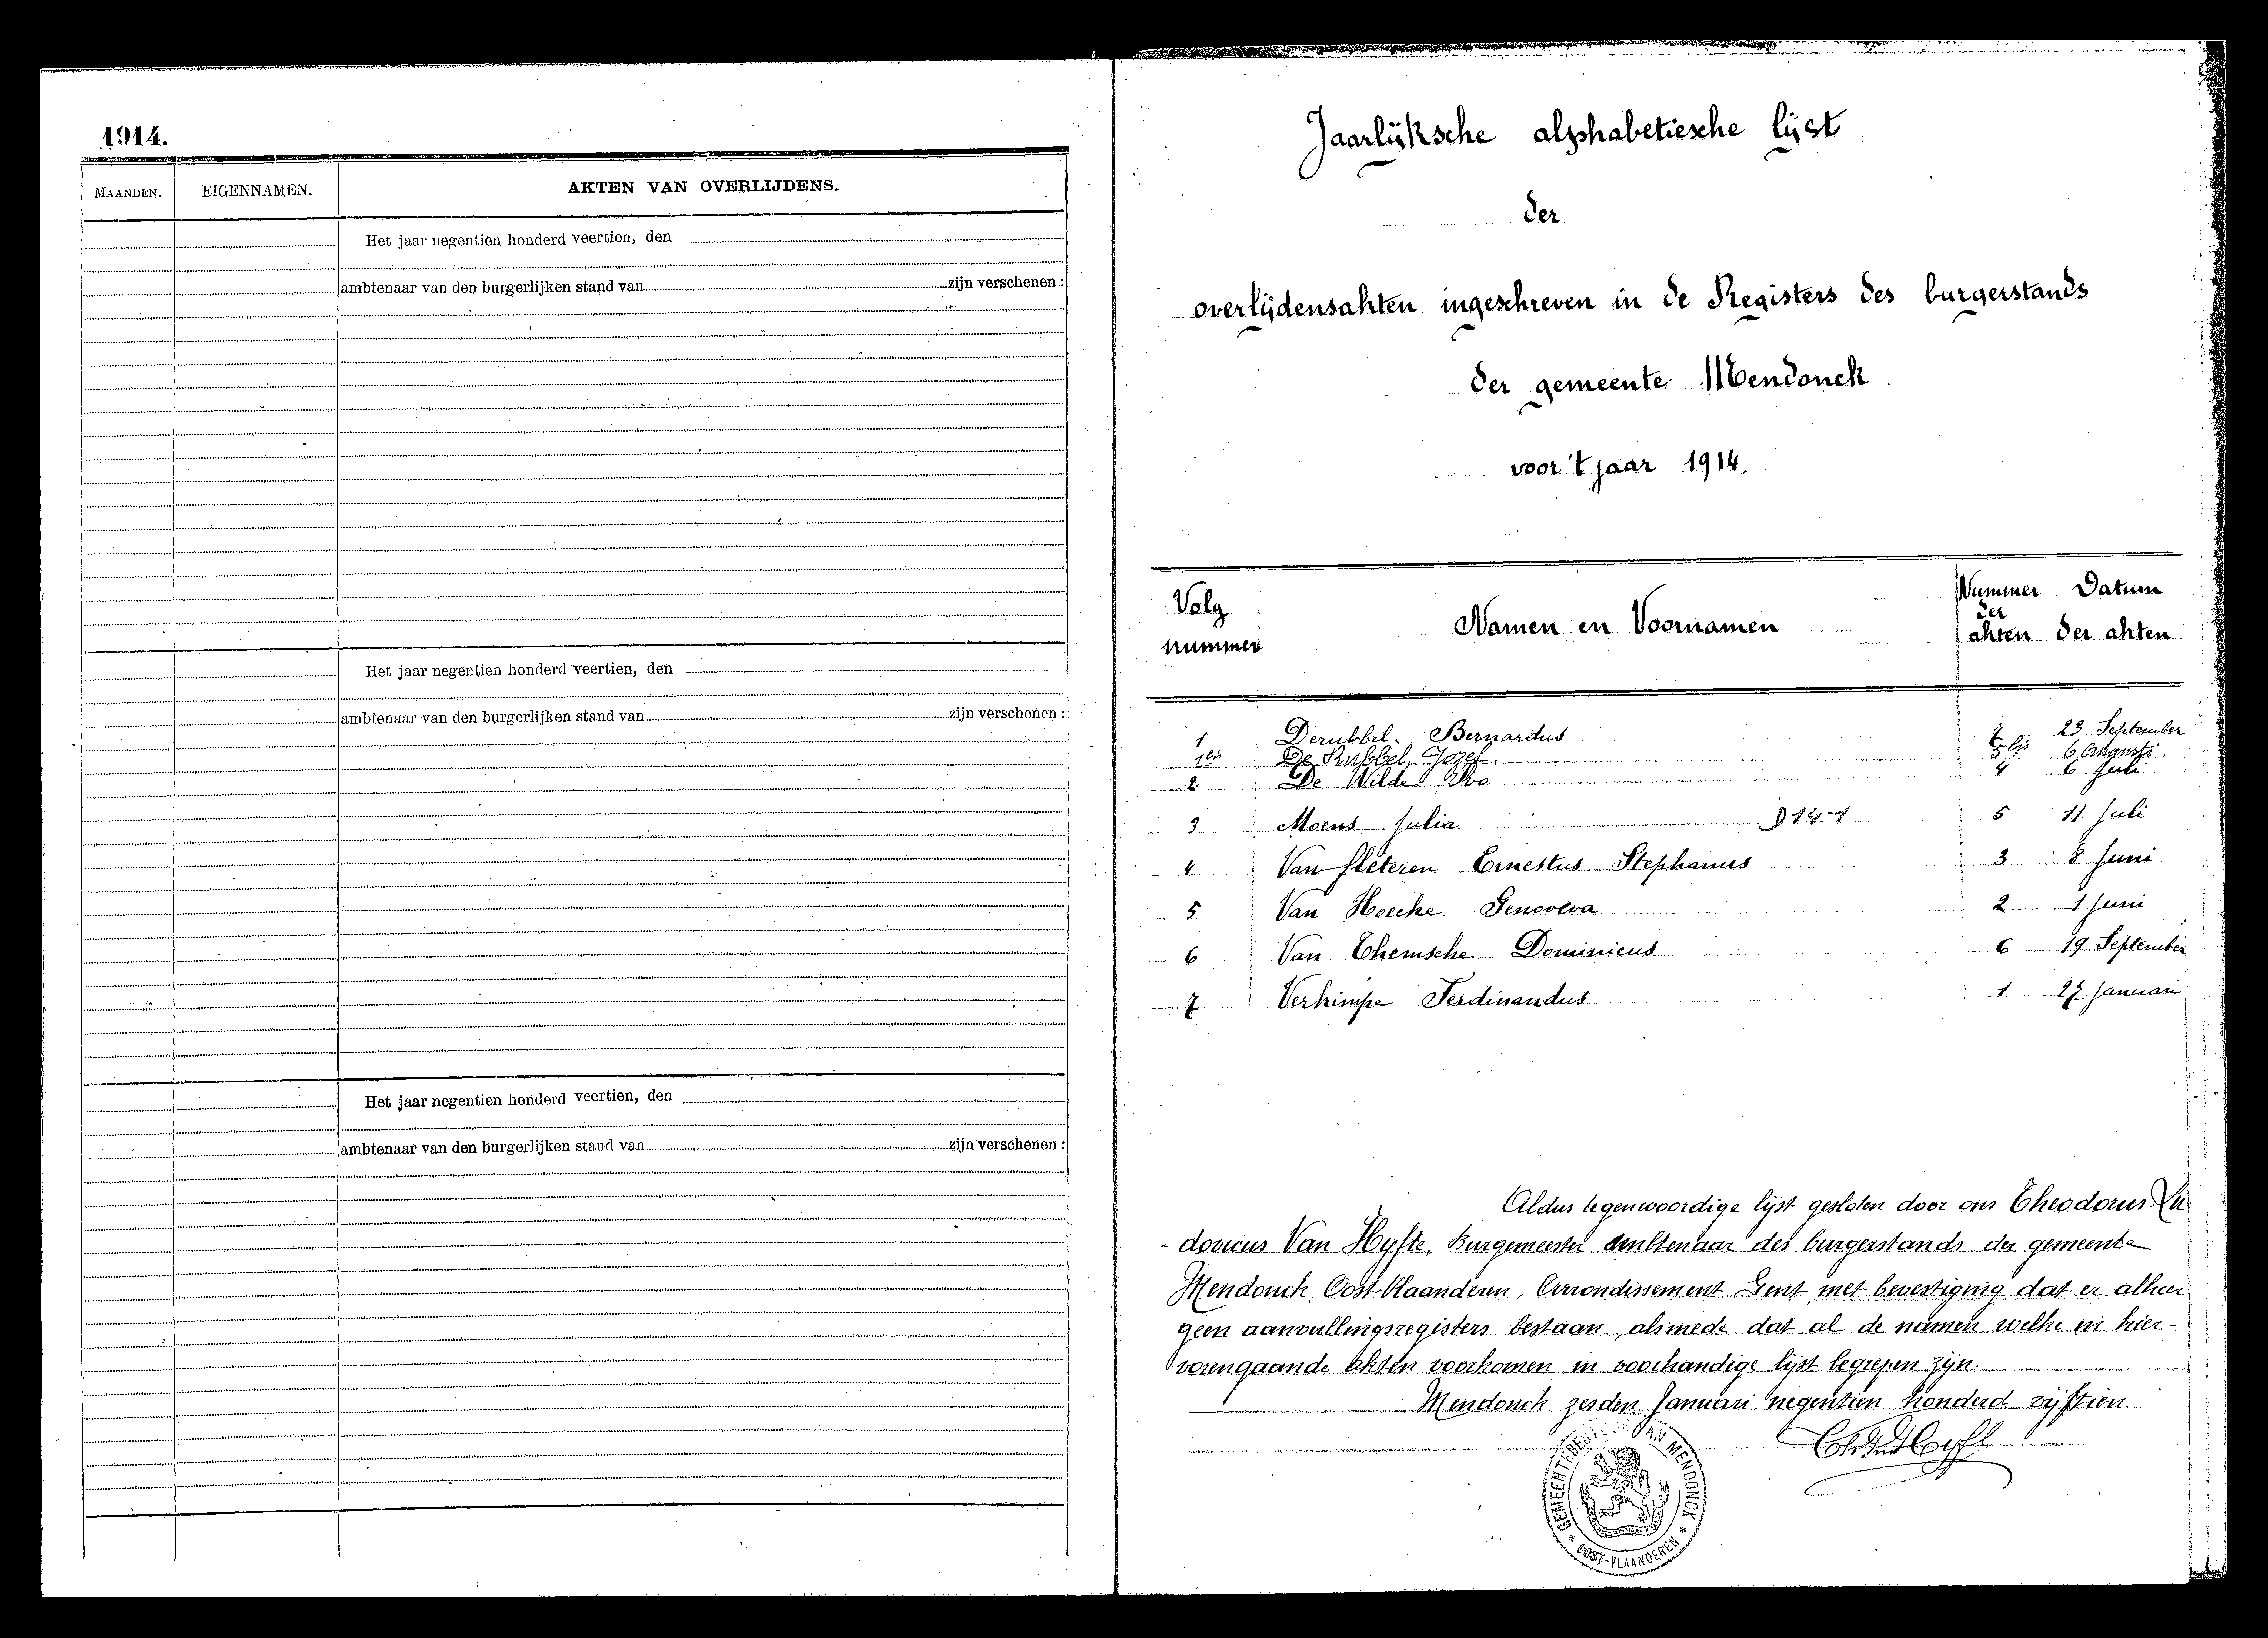 1914.
MAANDEN. EIGENNAMEN. AKTEN VAN OVERLIJDENS.
Het jaar negentien honderd veertien, den
ambtenaar van den burgerlijken stand van zijn verschenen :
Het jaar negentien honderd veertien, den
ambtenaar van den burgerlijken stand van zijn verschenen :
Het jaar negentien honderd veertien, den
ambtenaar van den burgerlijken stand van zijn verschenen :
Jaarlijksche alphabetiesche lijst
der
overlijdensakten ingeschreven in de Registers des burgerstands
der gemeente Mendonck
voor 't jaar 1914.
Volg nummer Namen en Voornamen Nummer der akten Datum der akten
1 Derubbel Bernardus 7 23 September
1bis De Rubbel, Jozef. 5bis 6 Augusti.
2 De Wilde Ivo 4 6 Juli
3 Moens Julia 5 11 Juli
4 Van fleteren Ernestus Stephanus 3 8 Juni
5 Van Hoecke Genoveva 2 1 Juni
6 Van Themsche Dominicus 6 19 September
7 Verkimpe Ferdinandus 1 27 Januari
Aldus tegenwoordige lijst gesloten door ons Theodorus Lu
-dovicus Van Hyfte, Burgemeester ambtenaar des burgerstands der gemeente
Mendonck, Oost-Vlaanderen, Arrondissement Gent met bevestiging dat er alhier
geen aanvullingsregisters bestaan, alsmede dat al de namen welke in hier-
vorengaande akten voorkomen in voorhandige lijst begrepen zijn.
Mendonck zesden Januari negentien honderd vijftien.
VAN MENDONCK
* OOST-VLAANDEREN *